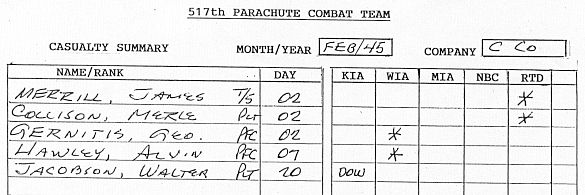 517th PARACHUTE COMBAT TEAM
CASUALTY SUMMARY MONTH/YEAR FEB/45 COMPANY C Co
NAME/RANK DAY KIA WIA MIA NBC RTD
MERRILL, JAMES T/5 02 *
COLLISON, MERLE Pvt 02 *
GERNITIS, GEO. PFC 02 *
HAWLEY, ALVIN PFC 07 *
JACOBSON, WALTER PVT 20 DOW